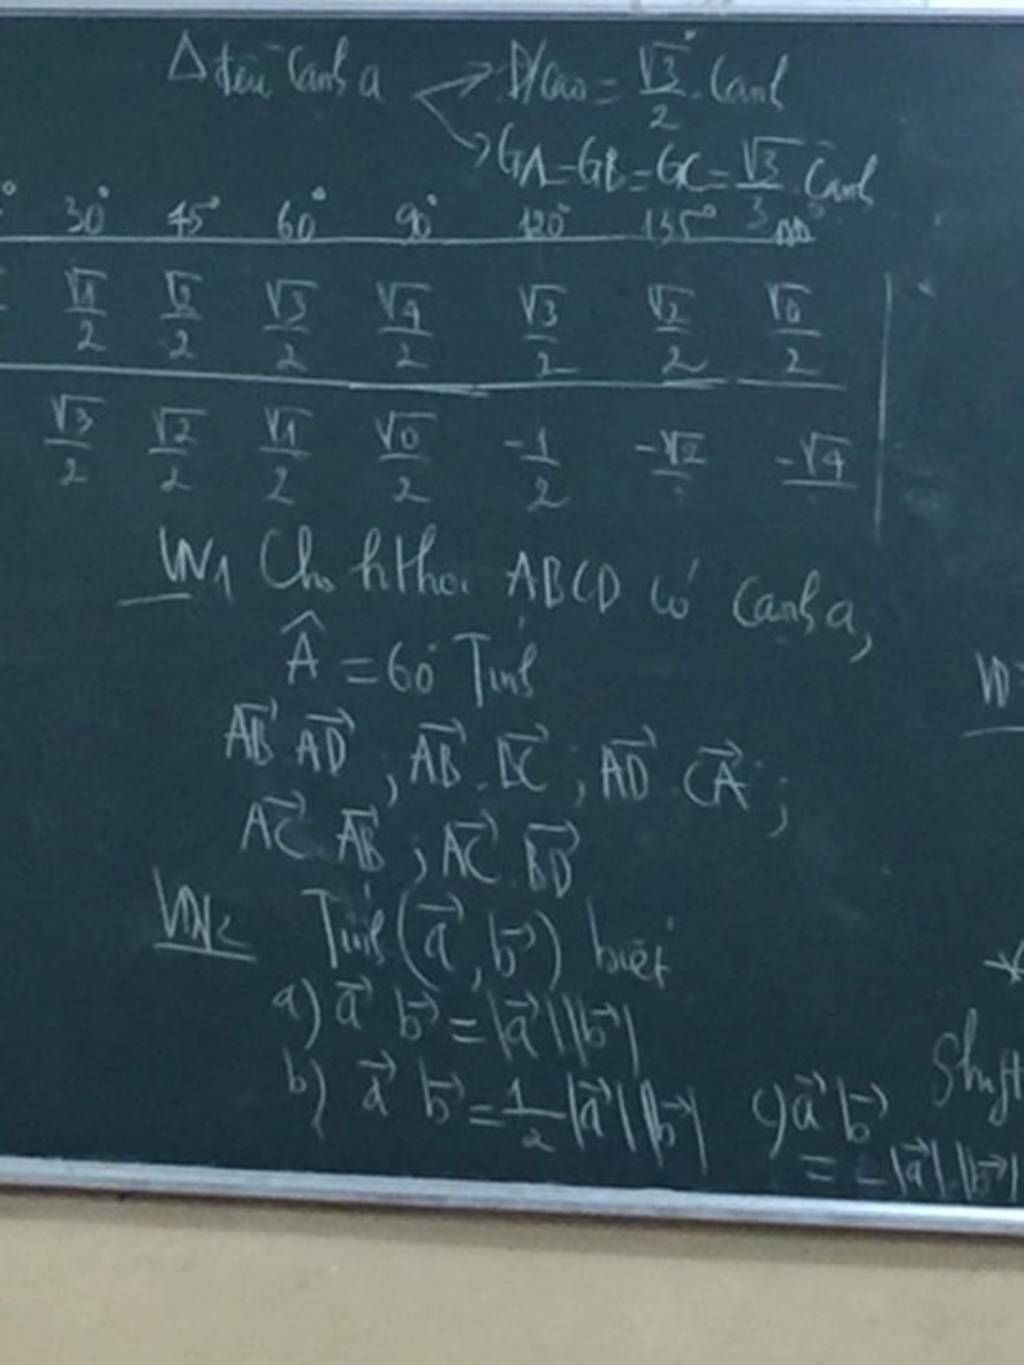 Δ đều cạnh a → Đ/cao = √3/2 . Cạnh
→ GA = GB = GC = √3/3 . Cạnh
30° 45° 60° 90° 120° 135° 180
√1/2 √2/2 √3/2 √4/2 √3/2 √2/2 √0/2
√3/2 √2/2 √1/2 √0/2 -1/2 -√2 -√4
VN1 Cho hthoi ABCD có cạnh a,
Â = 60° Tính
\vec{AB} \vec{AD} , \vec{AB} . \vec{BC} ; \vec{AD} . \vec{CA} ;
\vec{AC} \vec{AB} ; \vec{AC} . \vec{BD}
VN2 Tính (\vec{a} , \vec{b}) biết
a) \vec{a} \vec{b} = |\vec{a}||\vec{b}|
b) \vec{a} \vec{b} = 1/2 |\vec{a}||\vec{b}| c) \vec{a} \vec{b}
= -|\vec{a}|.|\vec{b}|
Shift